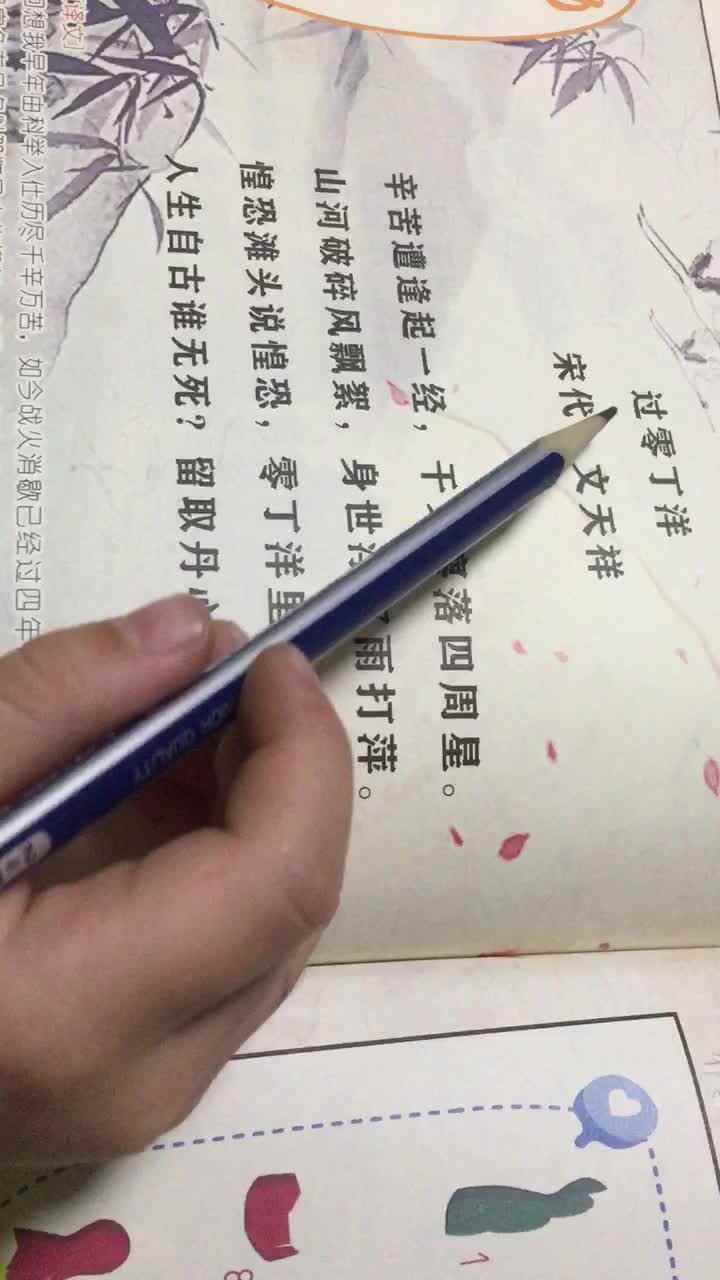 过零丁洋
宋代 文天祥
辛苦遭逢起一经，干落四周星。
山河破碎风飘絮，身世雨打萍。
惶恐滩头说惶恐，零丁洋里
人生自古谁无死？留取丹
[译文]
回想我早年由科举入仕历尽千辛万苦，如今战火消歇已经过四年
QUALITY
1
8